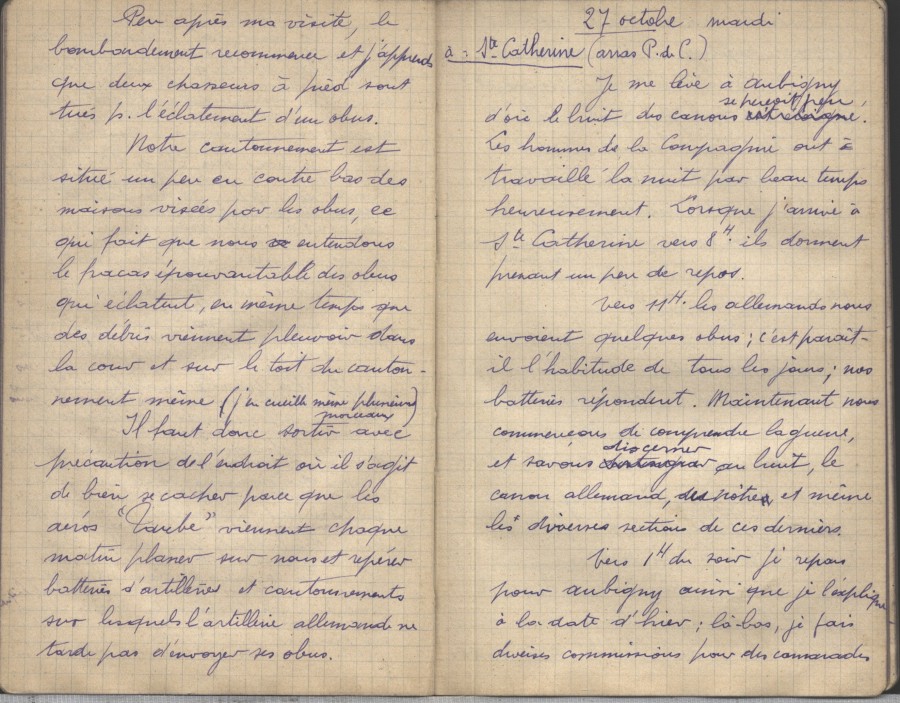 Peu après ma visite, le
bombardement recommence et j'apprends
que deux chasseurs à pied sont
tués p. l'éclatement d'un obus.
Notre cantonnement est
situé un peu en contre bas des
maisons visées par les obus, ce
qui fait que nous entendons
le fracas épouvantable des obus
qui éclatent, en même temps que
des débris viennent pleuvoir dans
la cour et sur le toit du canton-
nement même (j'en cueille même plusieurs
morceaux)
Il faut donc sortir avec
précaution de l'endroit où il s'agit
de bien se cacher parce que les
aéros "Taube" viennent chaque
matin planer sur nous et repérer
batteries d'artillerie et cantonnements
sur lesquels l'artillerie allemande ne
tarde pas d'envoyer ses obus.
27 octobre mardi
à : Ste Catherine (arras P. de C.)
Je me lève à Aubigny
se perçoit peu
d'où le bruit des canons .
Les hommes de la Compagnie ont
travaillé la nuit par beau temps
heureusement. Lorsque j'arrive à
Ste Catherine vers 8H. ils dorment
prenant un peu de repos.
Vers 11H. les allemands nous
envoient quelques obus ; c'est parait-
il l'habitude de tous les jours ; nos
batteries répondent. Maintenant nous
commencons de comprendre la guerre,
discerner
et savons au bruit, le
canon allemand, du nôtre, et même
les diverses sections de ces derniers.
Vers 1H du soir je repars
pour aubigny ainsi que je l'explique
à la date d'hier ; là-bas, je fais
diverses commissions pour des camarades